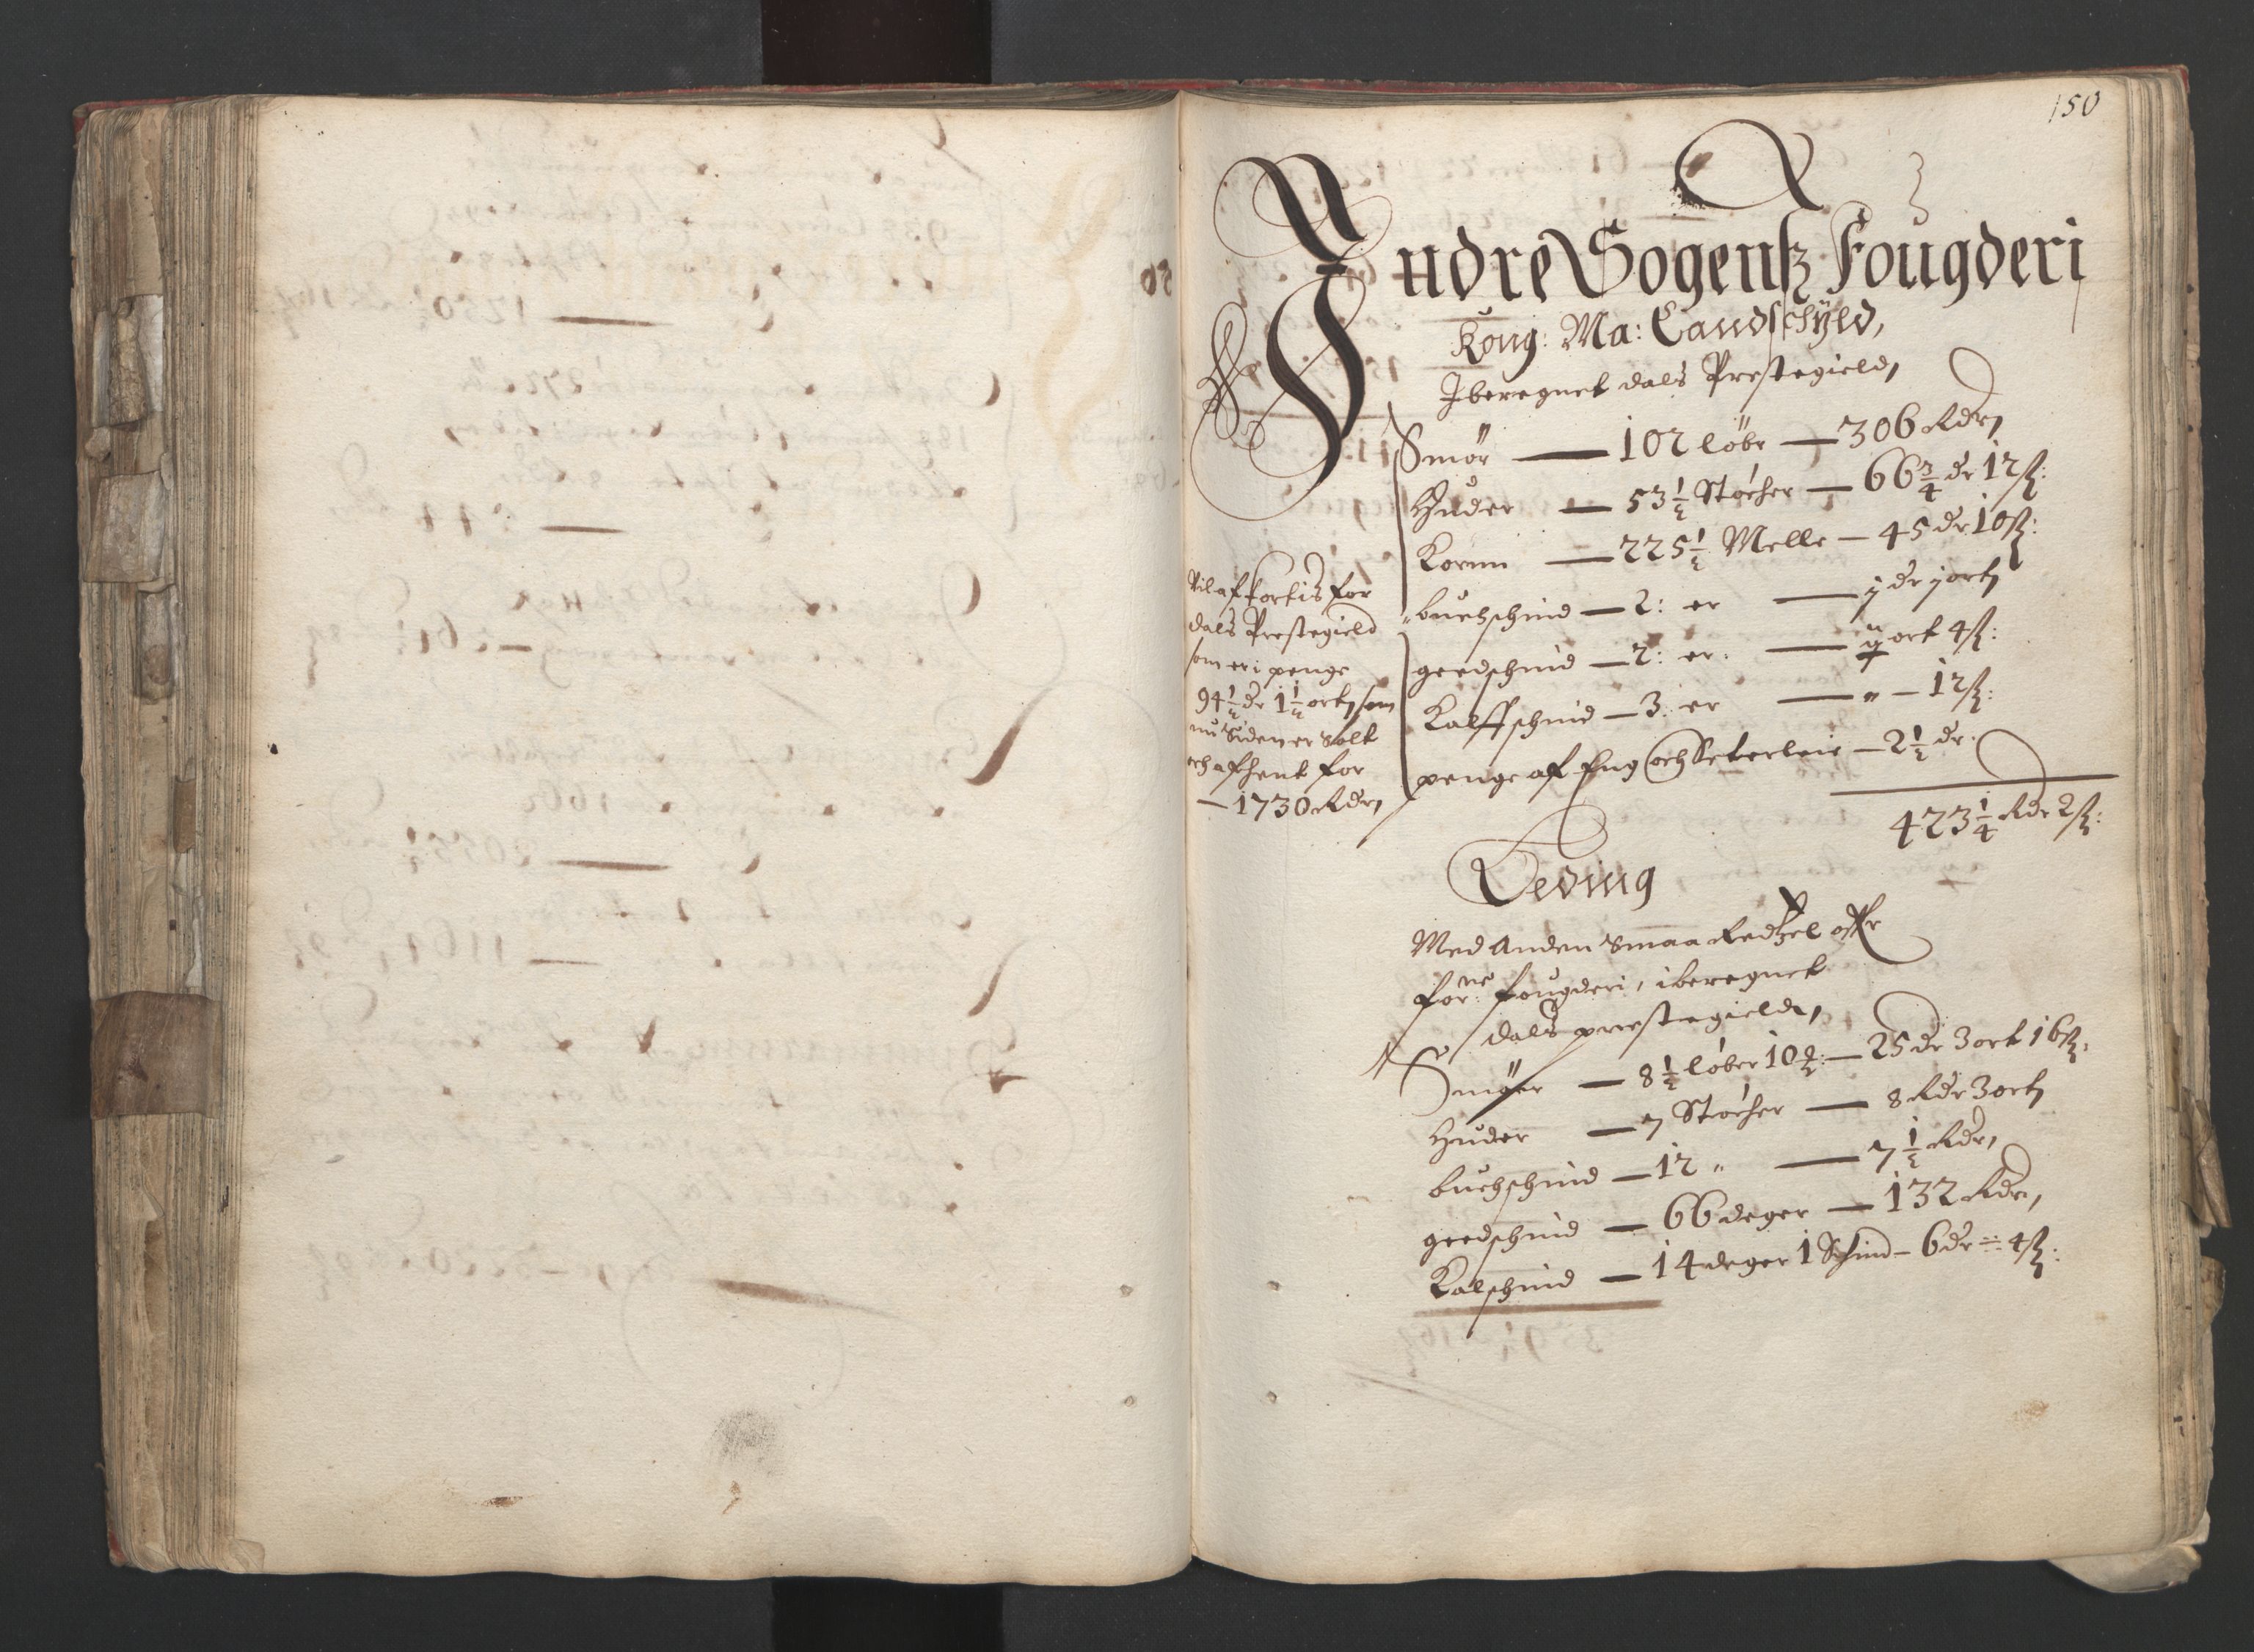 150
Indre Sogenß Fougderi
Kong: Ma: Landschÿld,
Iberegnet dals Prestegield,
Smör — 102 löbe — 306 Rdr,
Huder — 53 1/2 Støcher — 66 3/4 dr 12 ß:
Kornn — 225 1/2 Melle — 45 dr 10 ß:
buchschind — 2: er — j dr j ort,
geedschind — 2: er: — ij ort 4 ß:
Kalffschind — 3: er — " — 12 ß:
penge af Eng och Seterleie — 2 1/2 dr:
423 1/4 Rdr 2 ß:
Vil affkortis for
dals Prestegield
som er i penge
94 1/2 dr 1 1/2 ort, som
nu Siden er Solt
och afhent for
— 1730 Rdr,
Leding
Med Anden Smaa Redzel offr
forne: fougderi, iberegnet
dals prestegield,
Smöer — 8 1/2 løber 10 — 25 dr 3 ort 16 ß:
Huder — 7 Støcher — 8 Rdr 3 ort,
buchschind — 12 " — 7 1/2 Rdr,
geedschind — 66 deger — 132 Rdr,
Kalschind — 14 deger 1 Schind — 6 dr = 4 ß: